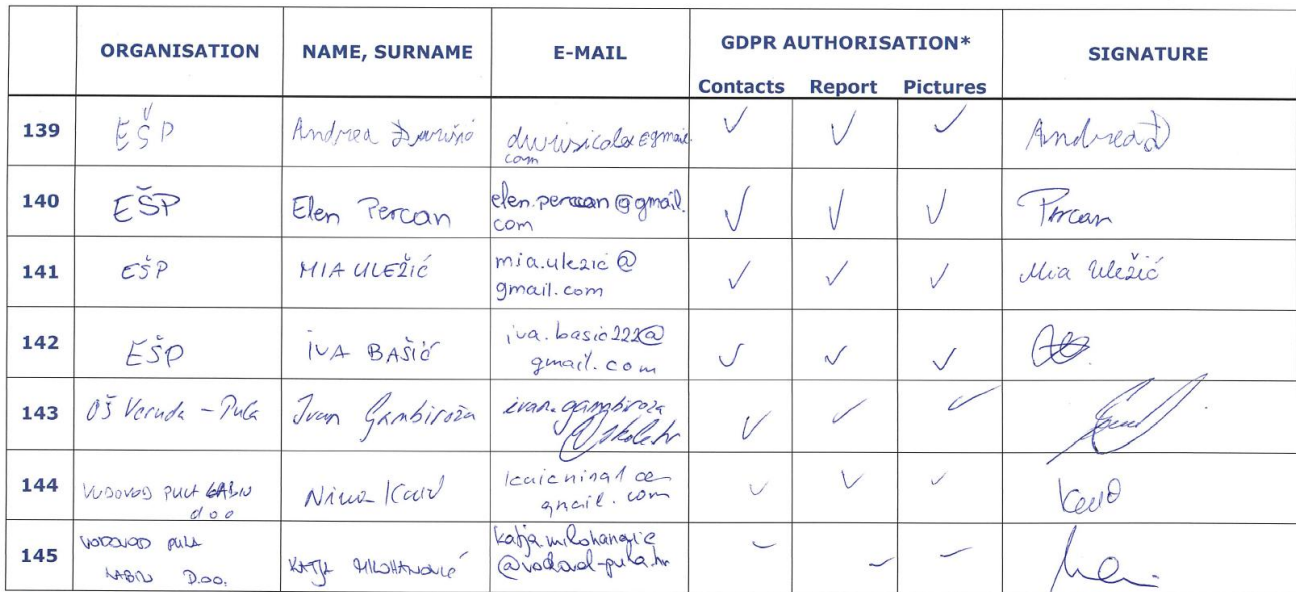 ORGANISATION NAME, SURNAME E-MAIL GDPR AUTHORISATION* SIGNATURE
Contacts Report Pictures
139 EŠP Andrea
com
Andrea Đ
140 EŠP Elen Percan elen.percan@gmail.
com
Percan
141 EŠP MIA ULEŽIĆ mia.ulezic@
gmail.com
Mia Uležić
142 EŠP IVA BAŠIĆ iva.basic222@
gmail.com
143 OŠ Veruda - Pula Ivan Gambiroža ivan.gambiroza
@skole.hr
144 VODOVOD PULA LABIN
d o o
Nina
gmail.com
145 VODOVOD PULA
LABIN D.o.o.
KATJA katja.milohanovic
@vodovod-pula.hr